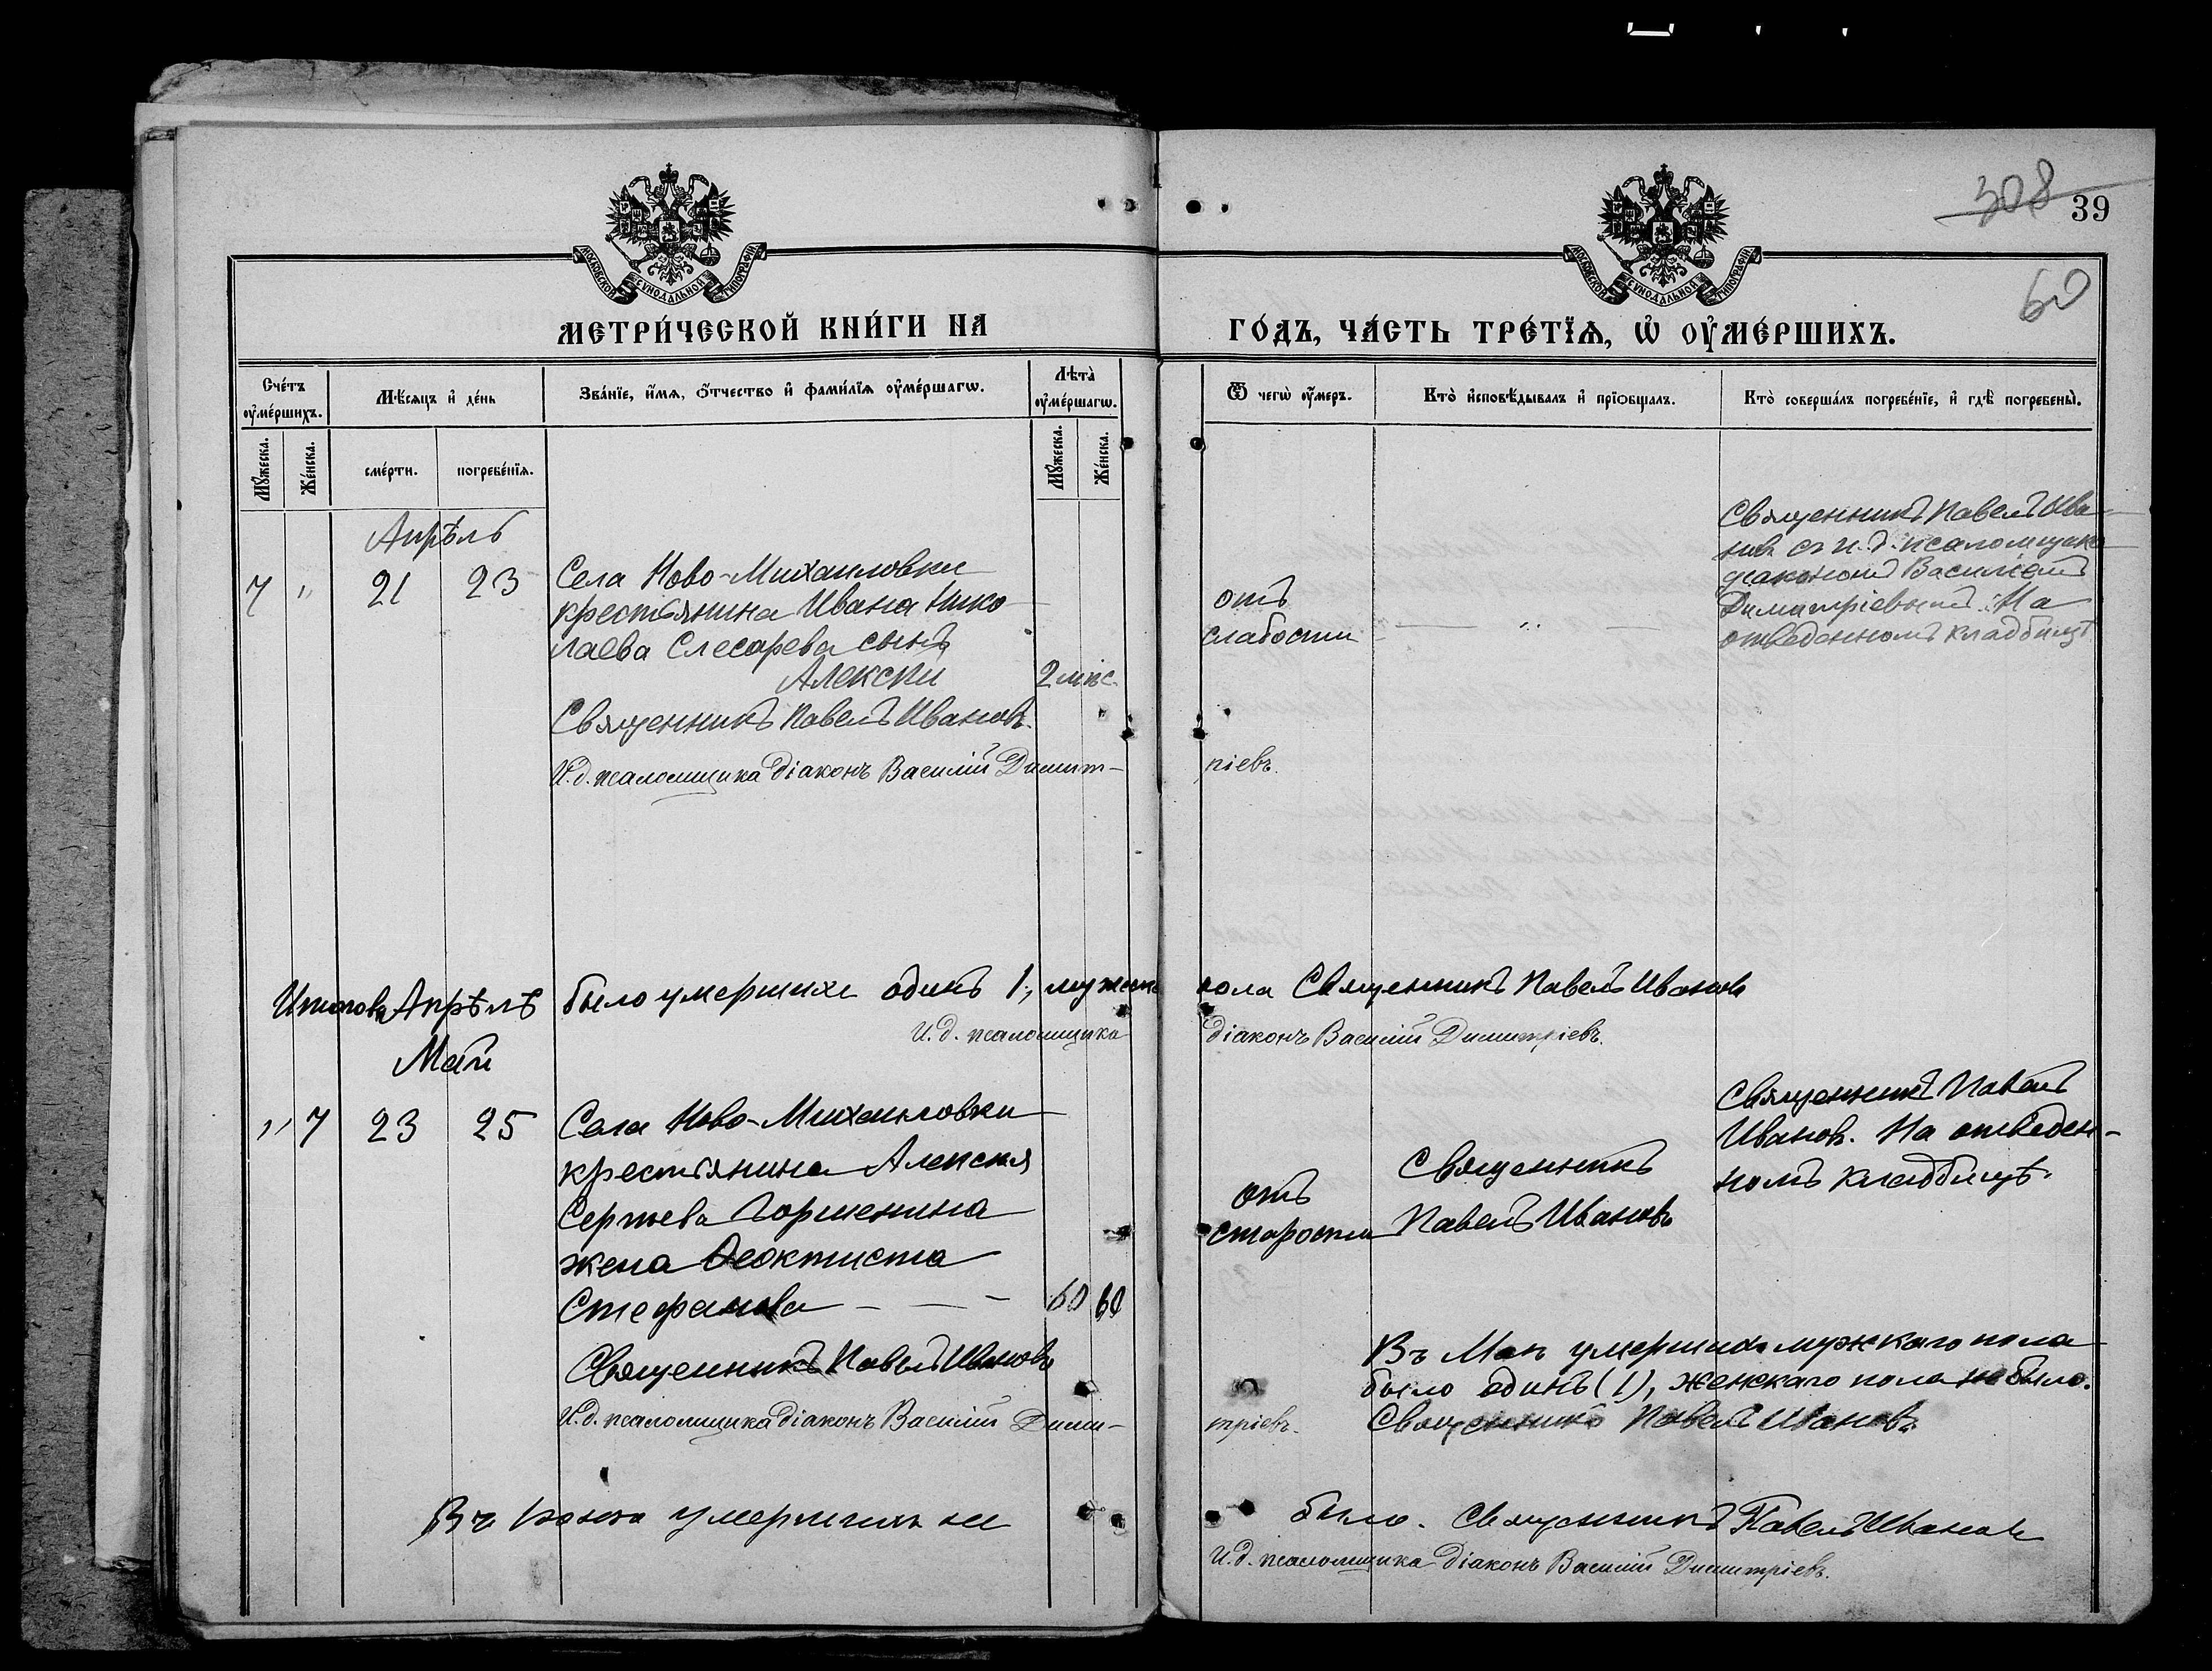 308 39
60
МОСКОВСКОЙ СѴНОДАЛЬНОЙ ТИПОГРАФІИ
МОСКОВСКОЙ СѴНОДАЛЬНОЙ ТИПОГРАФІИ
МЕТРИ́ЧЕСКОЙ КНИ́ГИ НА ГО́ДЪ, ЧА́СТЬ ТРЕ́ТІѦ, Ѡ҆ ОУ҆МЕ́РШИХЪ.
Сче́тъ оу҆ме́ршихъ.
Мѣ́сяцъ и҆ де́нь
Зва́нїе, и҆́мя, ѻ҆́тчество и҆ фами́лїя оу҆ме́ршагѡ.
Лѣта̀ оу҆ме́ршагѡ.
Ѿ чегѡ̀ оу҆́меръ.
Кто̀ и҆сповѣ́дывалъ и҆ прїѻбща́лъ.
Кто̀ соверша́лъ погребе́нїе, и҆ гдѣ̀ погребены̀.
Мꙋ́жеска.
Же́нска.
сме́рти.
погребе́нїя.
Мꙋ́жеска.
Же́нска.
Апрѣль
7 " 21 23
Села Ново-Михаиловки
крестьянина Ивана Нико
лаева Слесарева сынъ
Алексѣй
2 мѣс.
отъ
слабости
"
Священникъ Павелъ Ива
новъ съ и. д. псаломщика
діакономъ Василіемъ
Димитріевымъ. На
отведенномъ кладбищѣ
Священникъ Павелъ Ивановъ.
И. д. псаломщика діаконъ Василій Димит-
ріевъ.
Итого въ Апрѣлѣ было умершихъ одинъ 1, мужска пола Священникъ Павелъ Ивановъ
И. д. псаломщика діаконъ Василій Димитріевъ.
Май
" 7 23 25
Села Ново-Михаиловки
крестьянина Алексѣя
Сергѣева Горшенина
жена Ѳеоктиста
Стефанова
60 60
отъ
старости
Священникъ
Павелъ Ивановъ
Священникъ Павелъ
Ивановъ. На отведен-
номъ кладбищѣ.
Священникъ Павелъ Ивановъ
И. д. псаломщика діаконъ Василій Дими-
тріевъ.
Въ Маѣ умершихъ мужскаго пола
было одинъ (1), женскаго пола не было.
Священникъ Павелъ Ивановъ.
Въ Іюнѣ умершихъ не было. Священникъ Павелъ Ивановъ
И. д. псаломщика діаконъ Василій Димитріевъ.